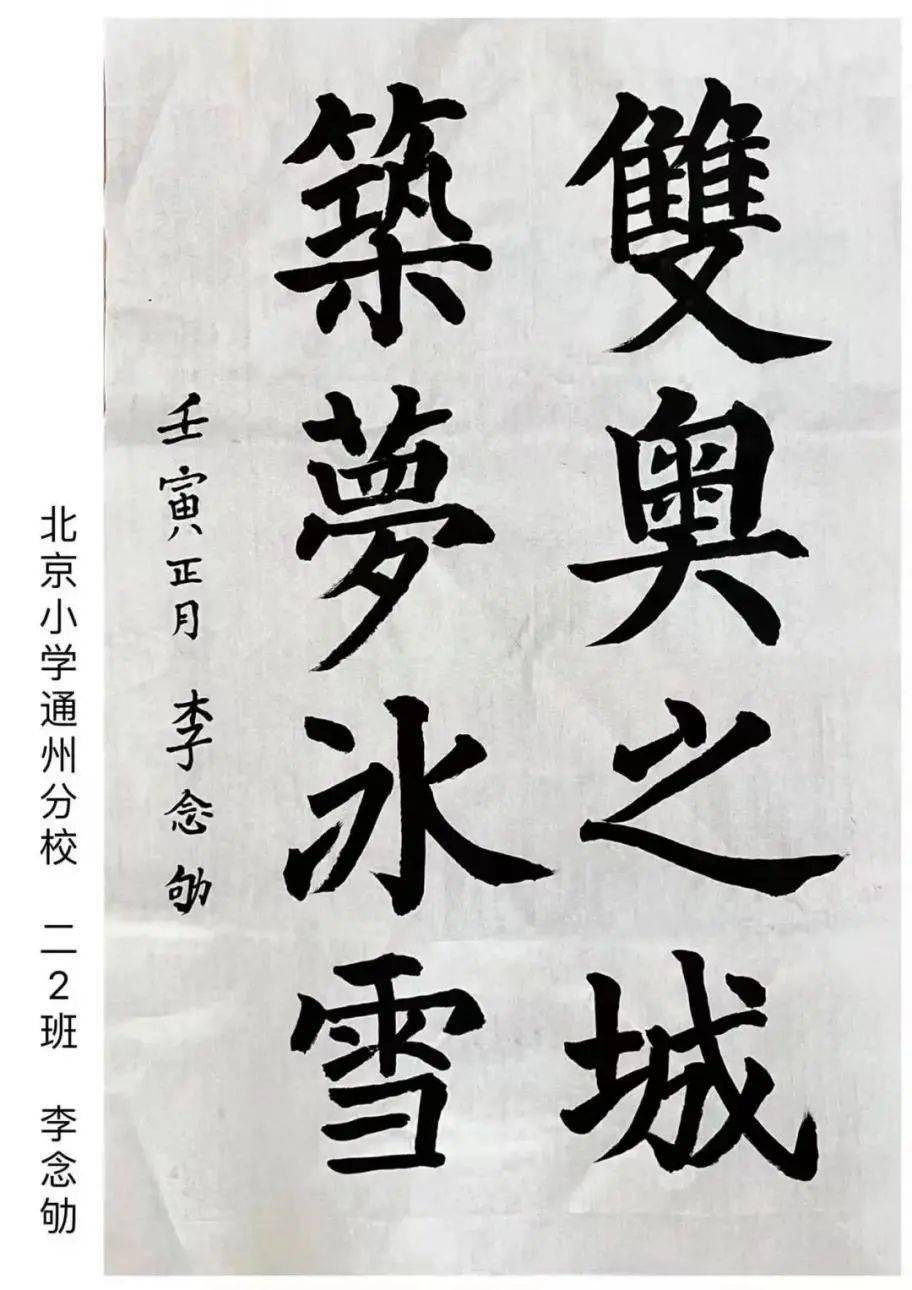 雙奧之城
築夢冰雪
壬寅正月 李念劬
北京小学通州分校 二2班 李念劬